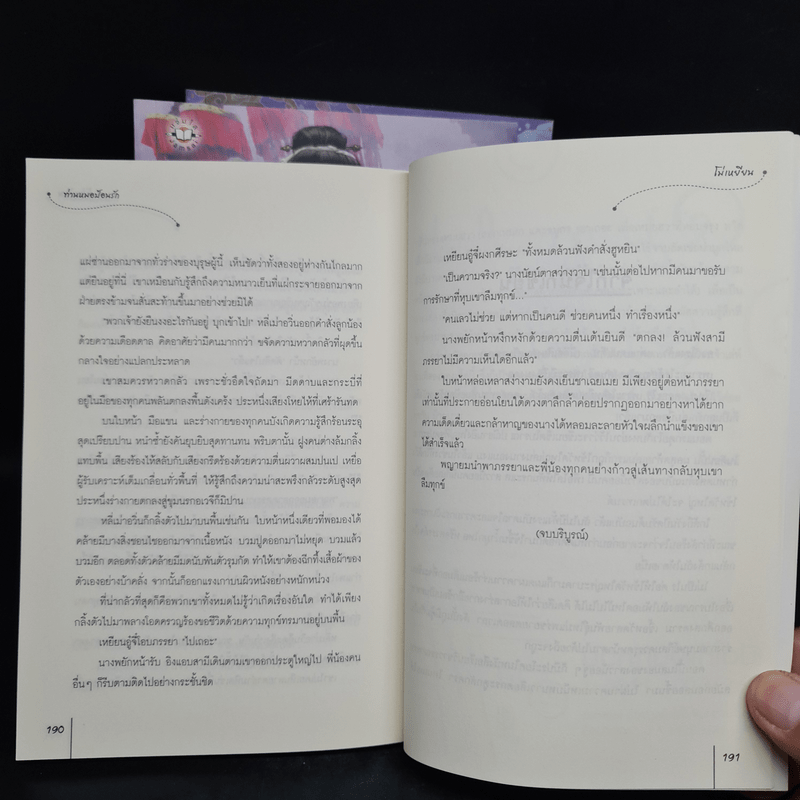 ท่านหมอป้อนรัก
แผ่ซ่านออกมาจากทั่วร่างของบุรุษผู้นี้ เห็นชัดว่าทั้งสองอยู่ห่างกันไกลมาก
แต่ยืนอยู่ที่นี่ เขาเหมือนกับรู้สึกถึงความหนาวเย็นที่แผ่กระจายออกมาจาก
ฝ่ายตรงข้ามจนสั่นสะท้านขึ้นมาอย่างช่วยมิได้
"พวกเจ้ายังยืนงงอะไรกันอยู่ บุกเข้าไป!" หลี่เม่าอวิ๋นออกคำสั่งลูกน้อง
ด้วยความเดือดดาล คิดอาศัยว่ามีคนมากกว่า ขจัดความหวาดกลัวที่ผุดขึ้น
กลางใจอย่างแปลกประหลาด
เขาสมควรหวาดกลัว เพราะชั่วอึดใจถัดมา มีดดาบและกระบี่ที่
อยู่ในมือของทุกคนพลันตกลงพื้นดังเคร้ง ประหนึ่งเสียงโหยไห้ที่เศร้ารันทด
บนใบหน้า มือแขน และร่างกายของทุกคนบังเกิดความรู้สึกร้อนระอุ
สุดเปรียบปาน หนำซ้ำยังคันยุบยิบสุดทานทน พริบตานั้น ฝูงคนต่างล้มกลิ้ง
แทบพื้น เสียงร้องไห้สลับกับเสียงกรีดร้องด้วยความตื่นผวาผสมปนเป เหยื่อ
ผู้รับเคราะห์เต็มเกลื่อนทั่วพื้นที่ ให้รู้สึกถึงความน่าสะพรึงกลัวระดับสูงสุด
ประหนึ่งร่างกายตกลงสู่ขุมนรกอเวจีก็มิปาน
หลี่เม่าอวิ๋นก็กลิ้งตัวไปมาบนพื้นเช่นกัน ใบหน้าหนึ่งเดียวที่พอมองได้
คล้ายมีบางสิ่งชอนไชออกมาจากเนื้อหนัง บวมปูดออกมาไม่หยุด บวมแล้ว
บวมอีก ตลอดทั้งตัวคล้ายมีมดนับพันตัวรุมกัด ทำให้เขาต้องฉีกทึ้งเสื้อผ้าของ
ตัวเองอย่างบ้าคลั่ง จากนั้นก็ออกแรงเกาบนผิวหนังอย่างหนักหน่วง
ที่น่ากลัวที่สุดก็คือพวกเขาทั้งหมดไม่รู้ว่าเกิดเรื่องอันใด ทำได้เพียง
กลิ้งตัวไปมาพลางโอดครวญร้องขอชีวิตด้วยความทุกข์ทรมานอยู่บนพื้น
เหยียนอู๋จี๋โอบภรรยา "ไปเถอะ"
นางพยักหน้ารับ อิงแอบสามีเดินตามเขาออกประตูใหญ่ไป พี่น้องคน
อื่นๆ ก็รีบตามติดไปอย่างกระชั้นชิด
190
โม่เหยียน
เหยียนอู๋จี๋ผงกศีรษะ "ทั้งหมดล้วนฟังคำสั่งฮูหยิน"
"เป็นความจริง?" นางนัยน์ตาสว่างวาบ "เช่นนั้นต่อไปหากมีคนมาขอรับ
การรักษาที่หุบเขาลืมทุกข์..."
"คนเลวไม่ช่วย แต่หากเป็นคนดี ช่วยคนหนึ่ง ทำเรื่องหนึ่ง"
นางพยักหน้าหงึกหงักด้วยความตื่นเต้นยินดี "ตกลง! ล้วนฟังสามี
ภรรยาไม่มีความเห็นใดอีกแล้ว"
ใบหน้าหล่อเหลาสง่างามยังคงเย็นชาเฉยเมย มีเพียงอยู่ต่อหน้าภรรยา
เท่านั้นที่ประกายอ่อนโยนใต้ดวงตาลึกล้ำค่อยปรากฏออกมาอย่างหาได้ยาก
ความเด็ดเดี่ยวและกล้าหาญของนางได้หลอมละลายหัวใจผลึกน้ำแข็งของเขา
ได้สำเร็จแล้ว
พญายมนำพาภรรยาและพี่น้องทุกคนย่างก้าวสู่เส้นทางกลับหุบเขา
ลืมทุกข์
(จบบริบูรณ์)
191